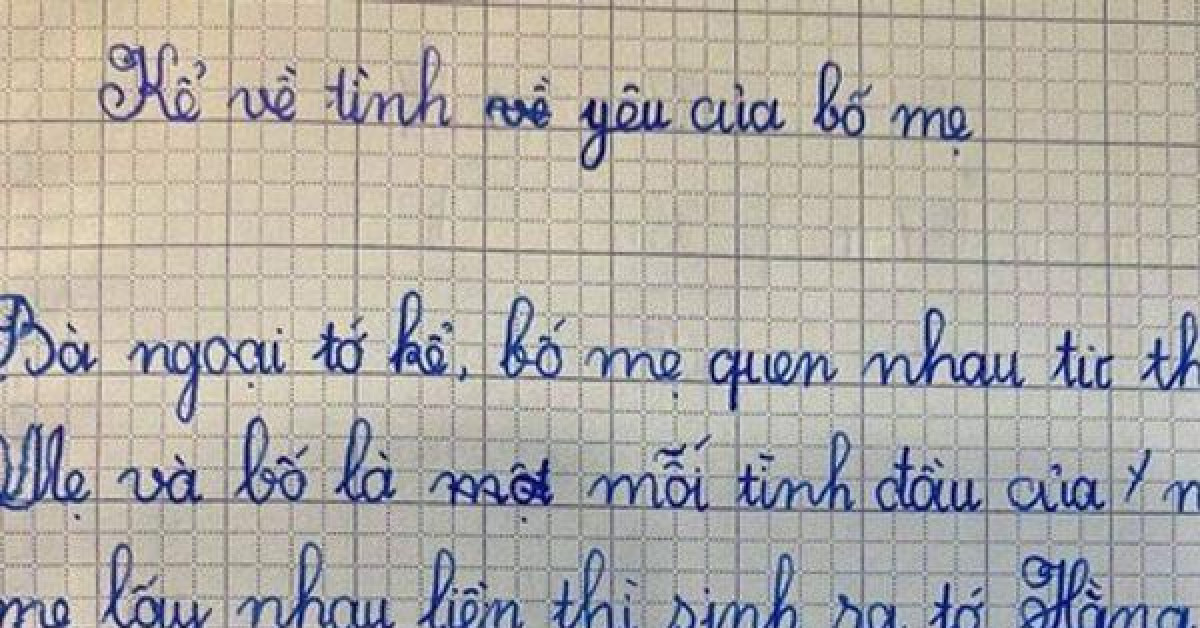 Kể về tình yêu của bố mẹ
Bà ngoại tớ kể, bố mẹ quen nhau từ th
Mẹ và bố là mối tình đầu của
mẹ lấy nhau liền thì sinh ra tớ Hằng